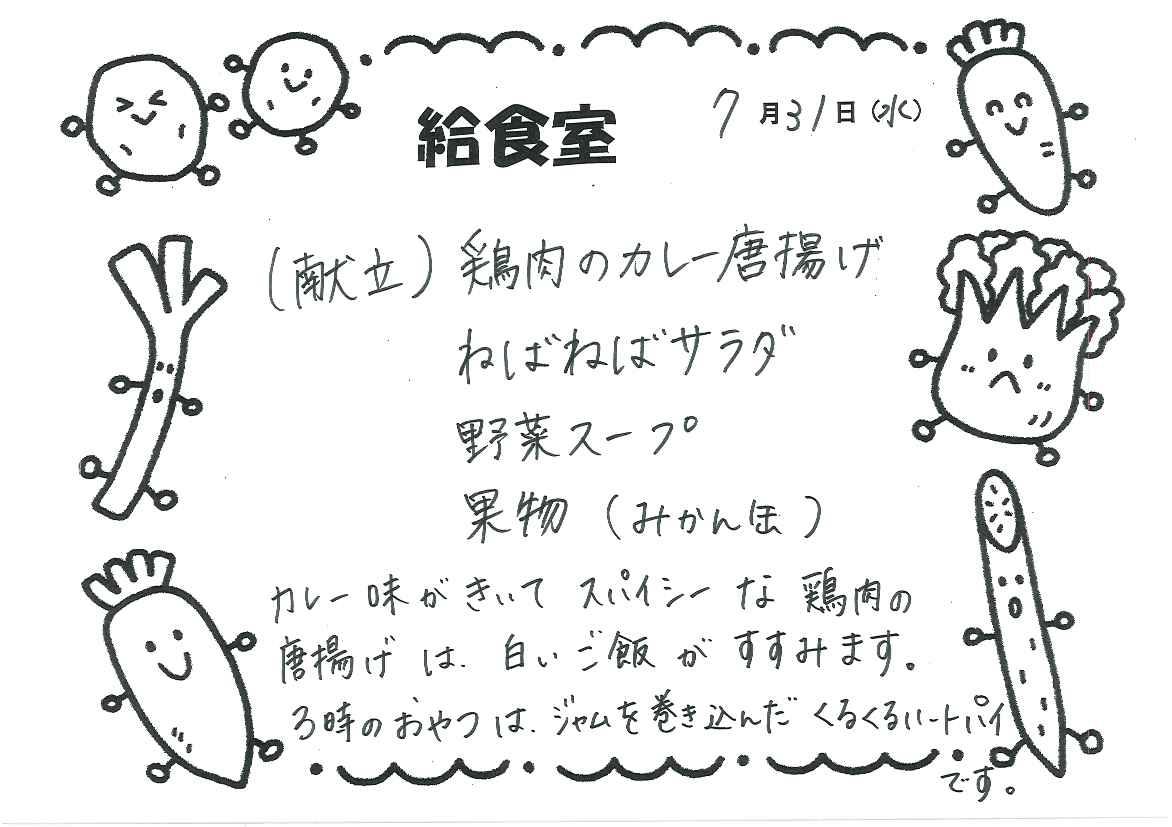 給食室
7月31日(水)
(献立) 鶏肉のカレー唐揚げ
ねばねばサラダ
野菜スープ
果物 (みかん缶)
カレー味がきいて スパイシーな 鶏肉の
唐揚げは、白いご飯がすすみます。
3時のおやつは、ジャムを巻き込んだくるくるハートパイ
です。